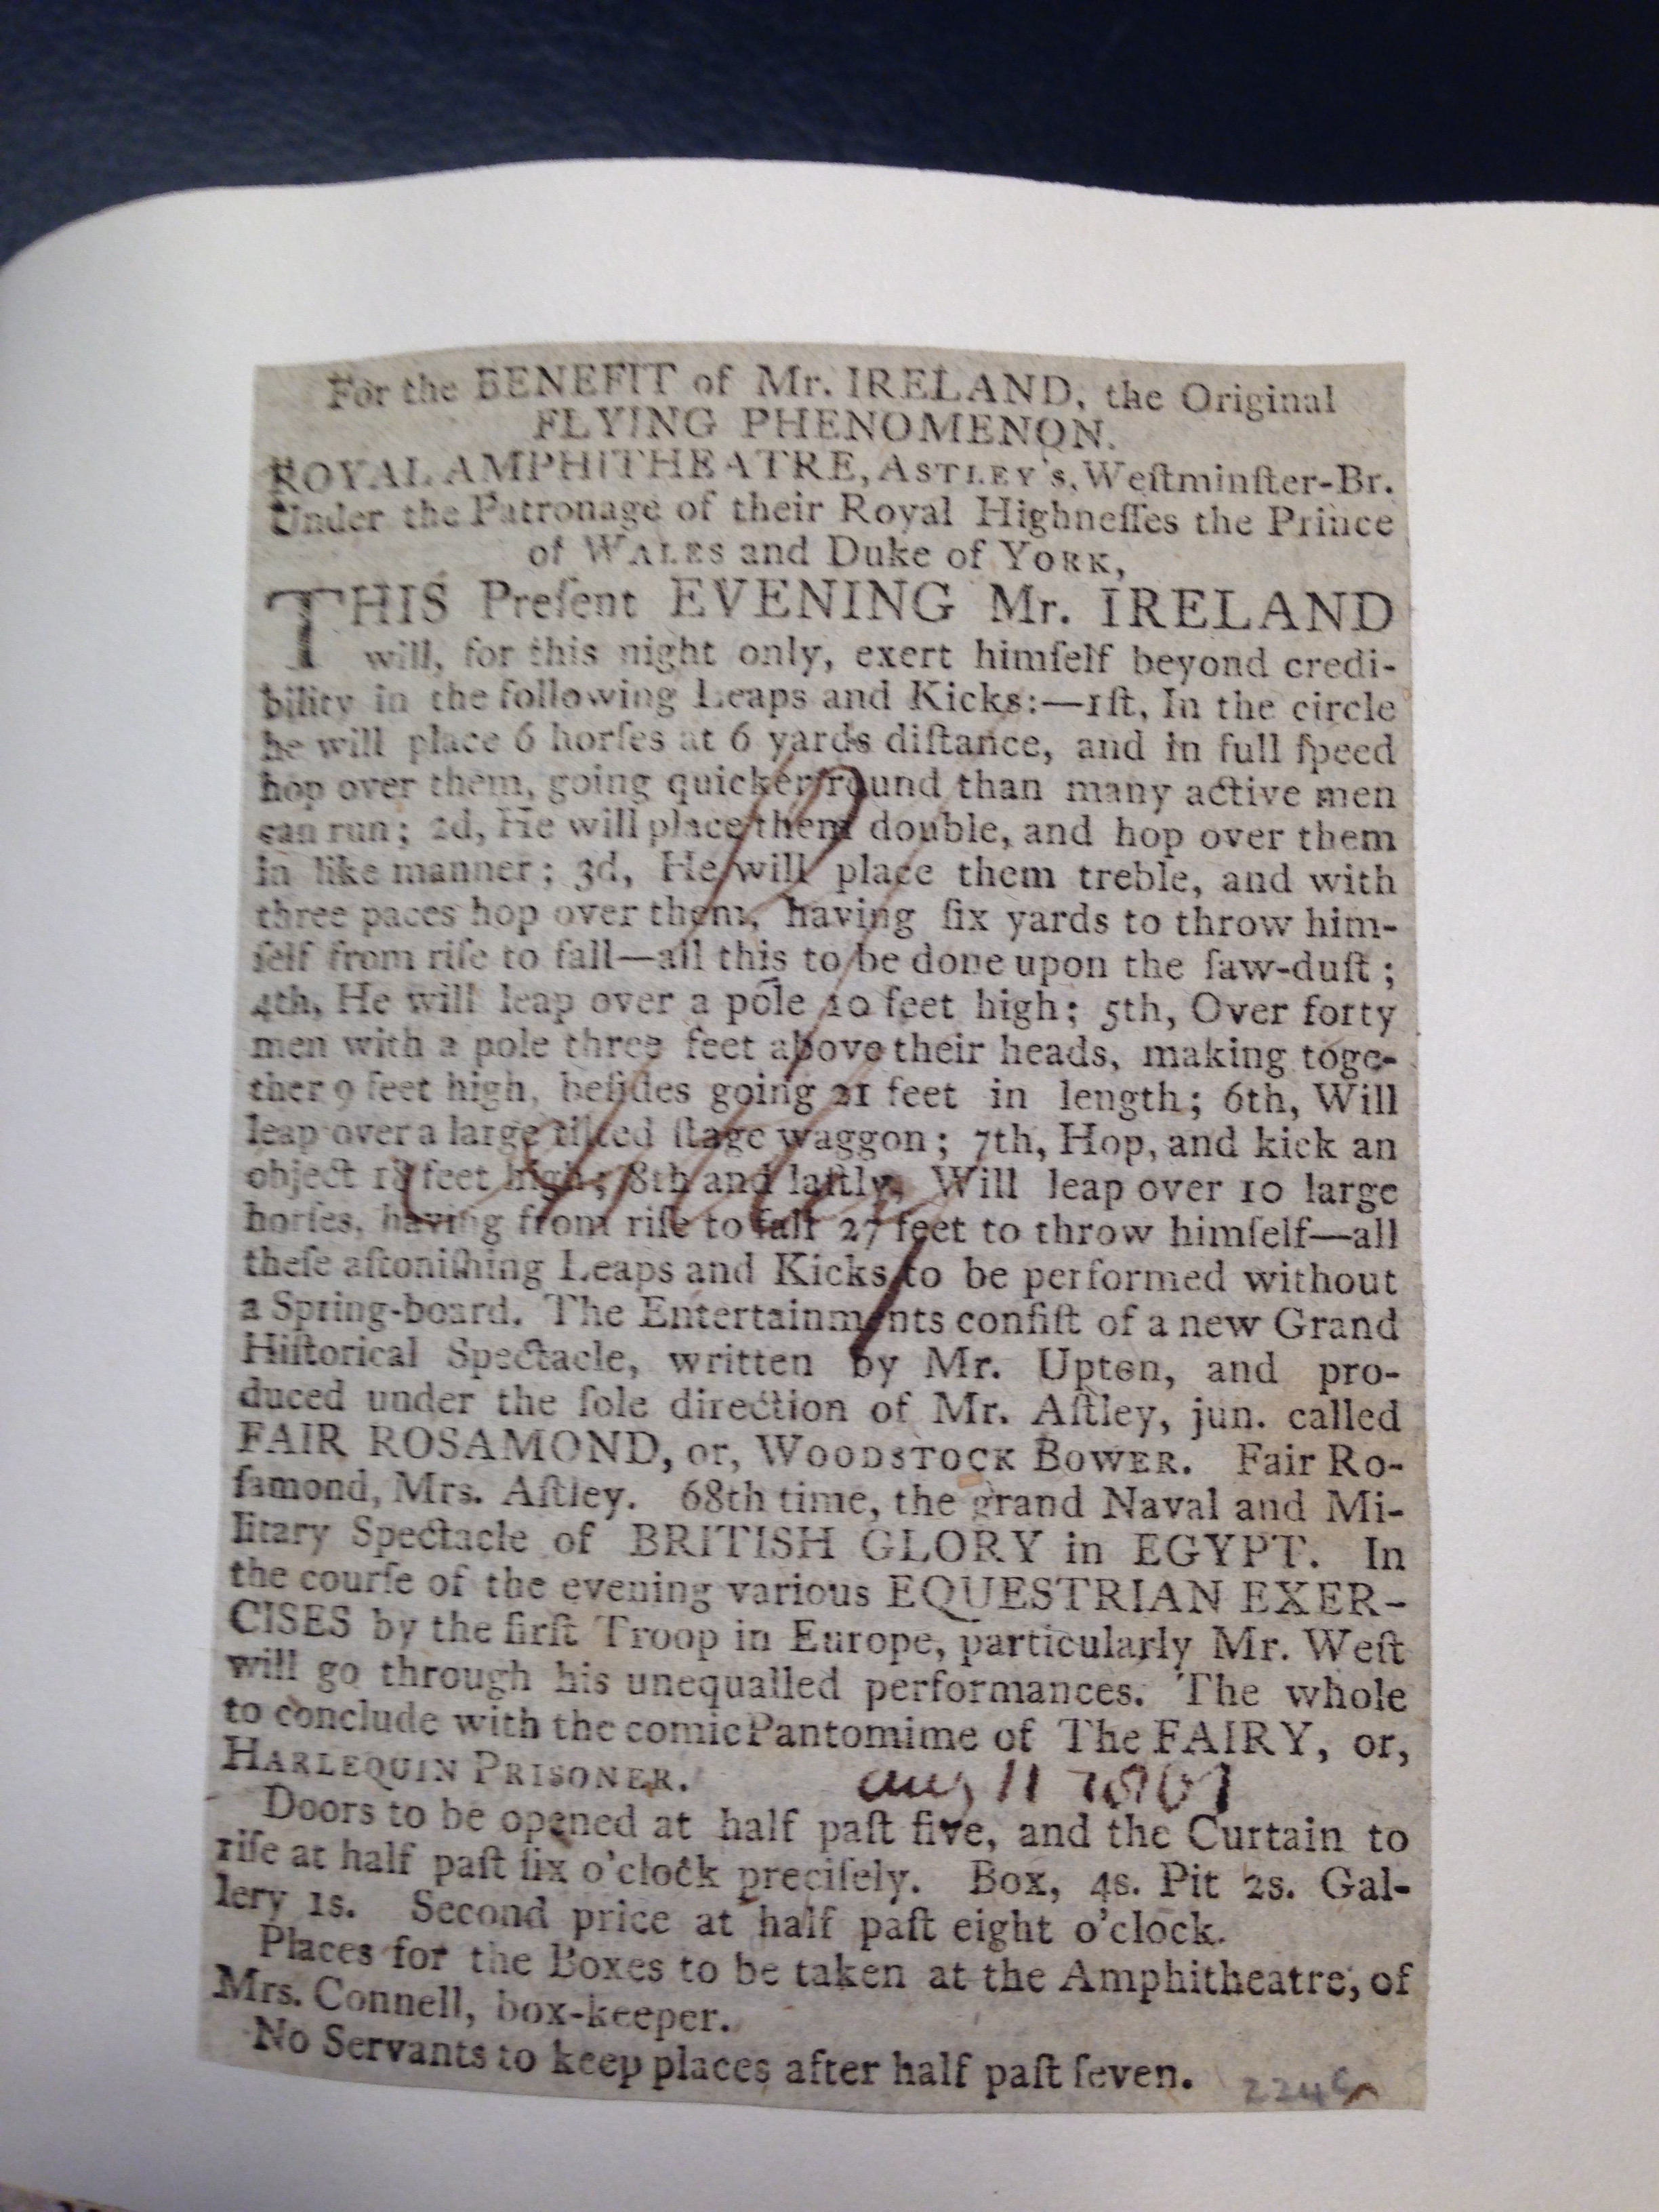 For the BENEFIT of Mr. IRELAND, the Original
FLYING PHENOMENON.
ROYAL AMPHITHEATRE, ASTLEY's, Weſtminſter-Br.
Under the Patronage of their Royal Highneſſes the Prince
of WALES and Duke of YORK,
THIS Preſent EVENING Mr. IRELAND
will, for this night only, exert himſelf beyond credi-
bility in the following Leaps and Kicks:—1ſt, In the circle
he will place 6 horſes at 6 yards diſtance, and in full ſpeed
hop over them, going quicker round than many active men
can run; 2d, He will place them double, and hop over them
in like manner; 3d, He will place them treble, and with
three paces hop over them, having ſix yards to throw him-
ſelf from riſe to fall—all this to be done upon the ſaw-duſt;
4th, He will leap over a pole 10 feet high; 5th, Over forty
men with a pole three feet above their heads, making toge-
ther 9 feet high, beſides going 21 feet in length; 6th, Will
leap over a large tilted ſtage waggon; 7th, Hop, and kick an
object 18 feet high; 8th and laſtly, Will leap over 10 large
horſes, having from riſe to fall 27 feet to throw himſelf—all
theſe aſtoniſhing Leaps and Kicks to be performed without
a Spring-board. The Entertainments conſiſt of a new Grand
Hiſtorical Spectacle, written by Mr. Upton, and pro-
duced under the ſole direction of Mr. Aſtley, jun. called
FAIR ROSAMOND, or, WOODSTOCK BOWER. Fair Ro-
ſamond, Mrs. Aſtley. 68th time, the grand Naval and Mi-
litary Spectacle of BRITISH GLORY in EGYPT. In
the courſe of the evening various EQUESTRIAN EXER-
CISES by the firſt Troop in Europe, particularly Mr. Weſt
will go through his unequalled performances. The whole
to conclude with the comic Pantomime of The FAIRY, or,
HARLEQUIN PRISONER. aug 11 1801
Doors to be opened at half paſt five, and the Curtain to
riſe at half paſt ſix o'clock preciſely. Box, 4s. Pit 2s. Gal-
lery 1s. Second price at half paſt eight o'clock.
Places for the Boxes to be taken at the Amphitheatre, of
Mrs. Connell, box-keeper.
No Servants to keep places after half paſt ſeven.